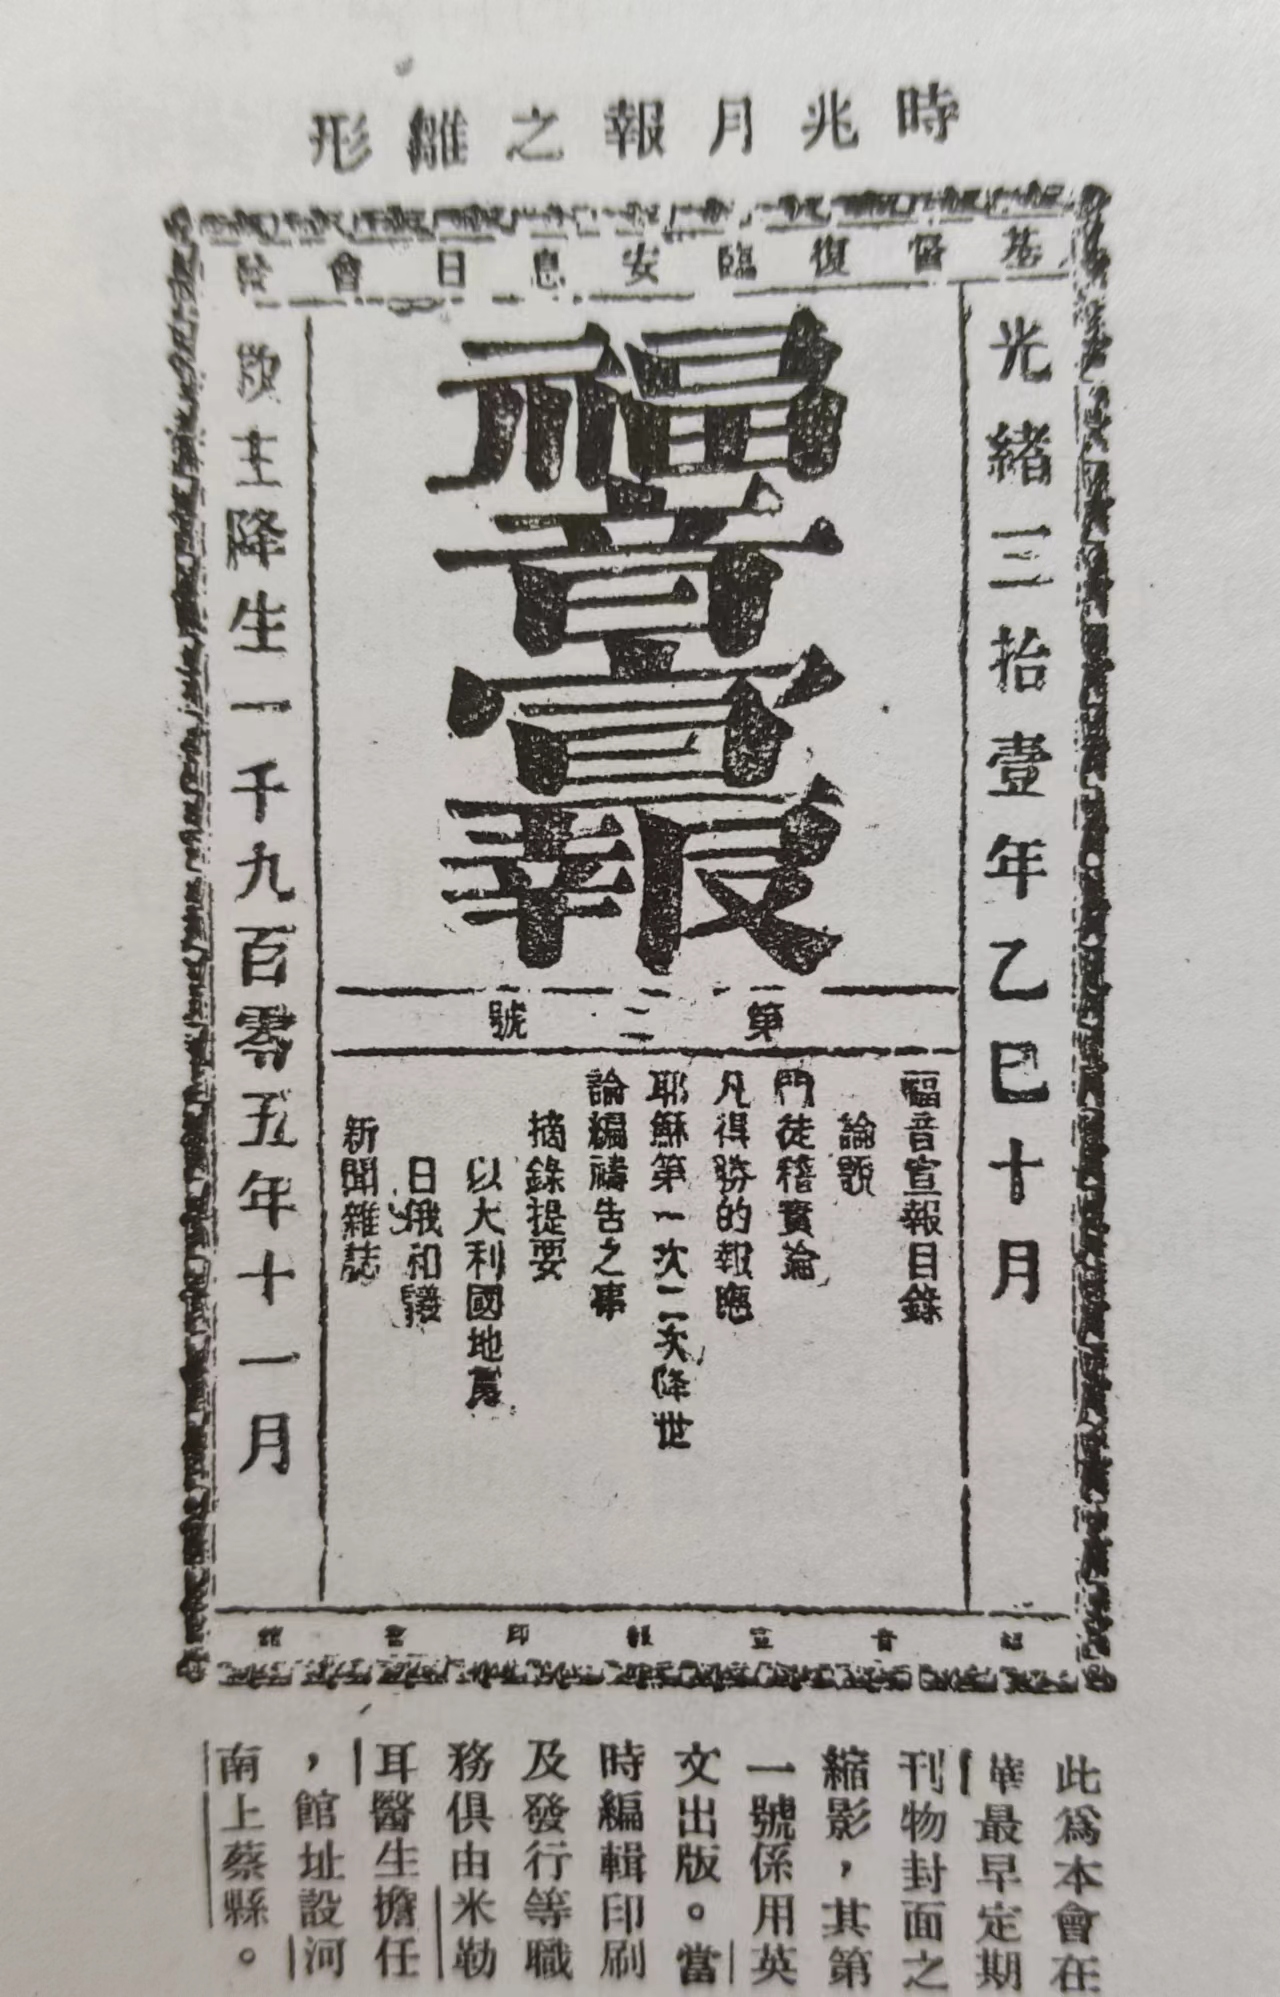 時兆月報之雛形
基督復臨安息日會啓
光緒三拾壹年乙巳十月
福音宣報
救主降生一千九百零五年十一月
第二號
福音宣報目錄
論題
門徒稽實論
凡得勝的報應
耶穌第一次二次降世
論編禱告之事
摘錄提要
以大利國地震
日俄和議
新聞雜誌
福音宣報印書館
此爲本會在
華最早定期
刊物封面之
縮影，其第
一號係用英
文出版。當
時編輯印刷
及發行等職
務俱由米勒
耳醫生擔任
，館址設河
南上蔡縣。